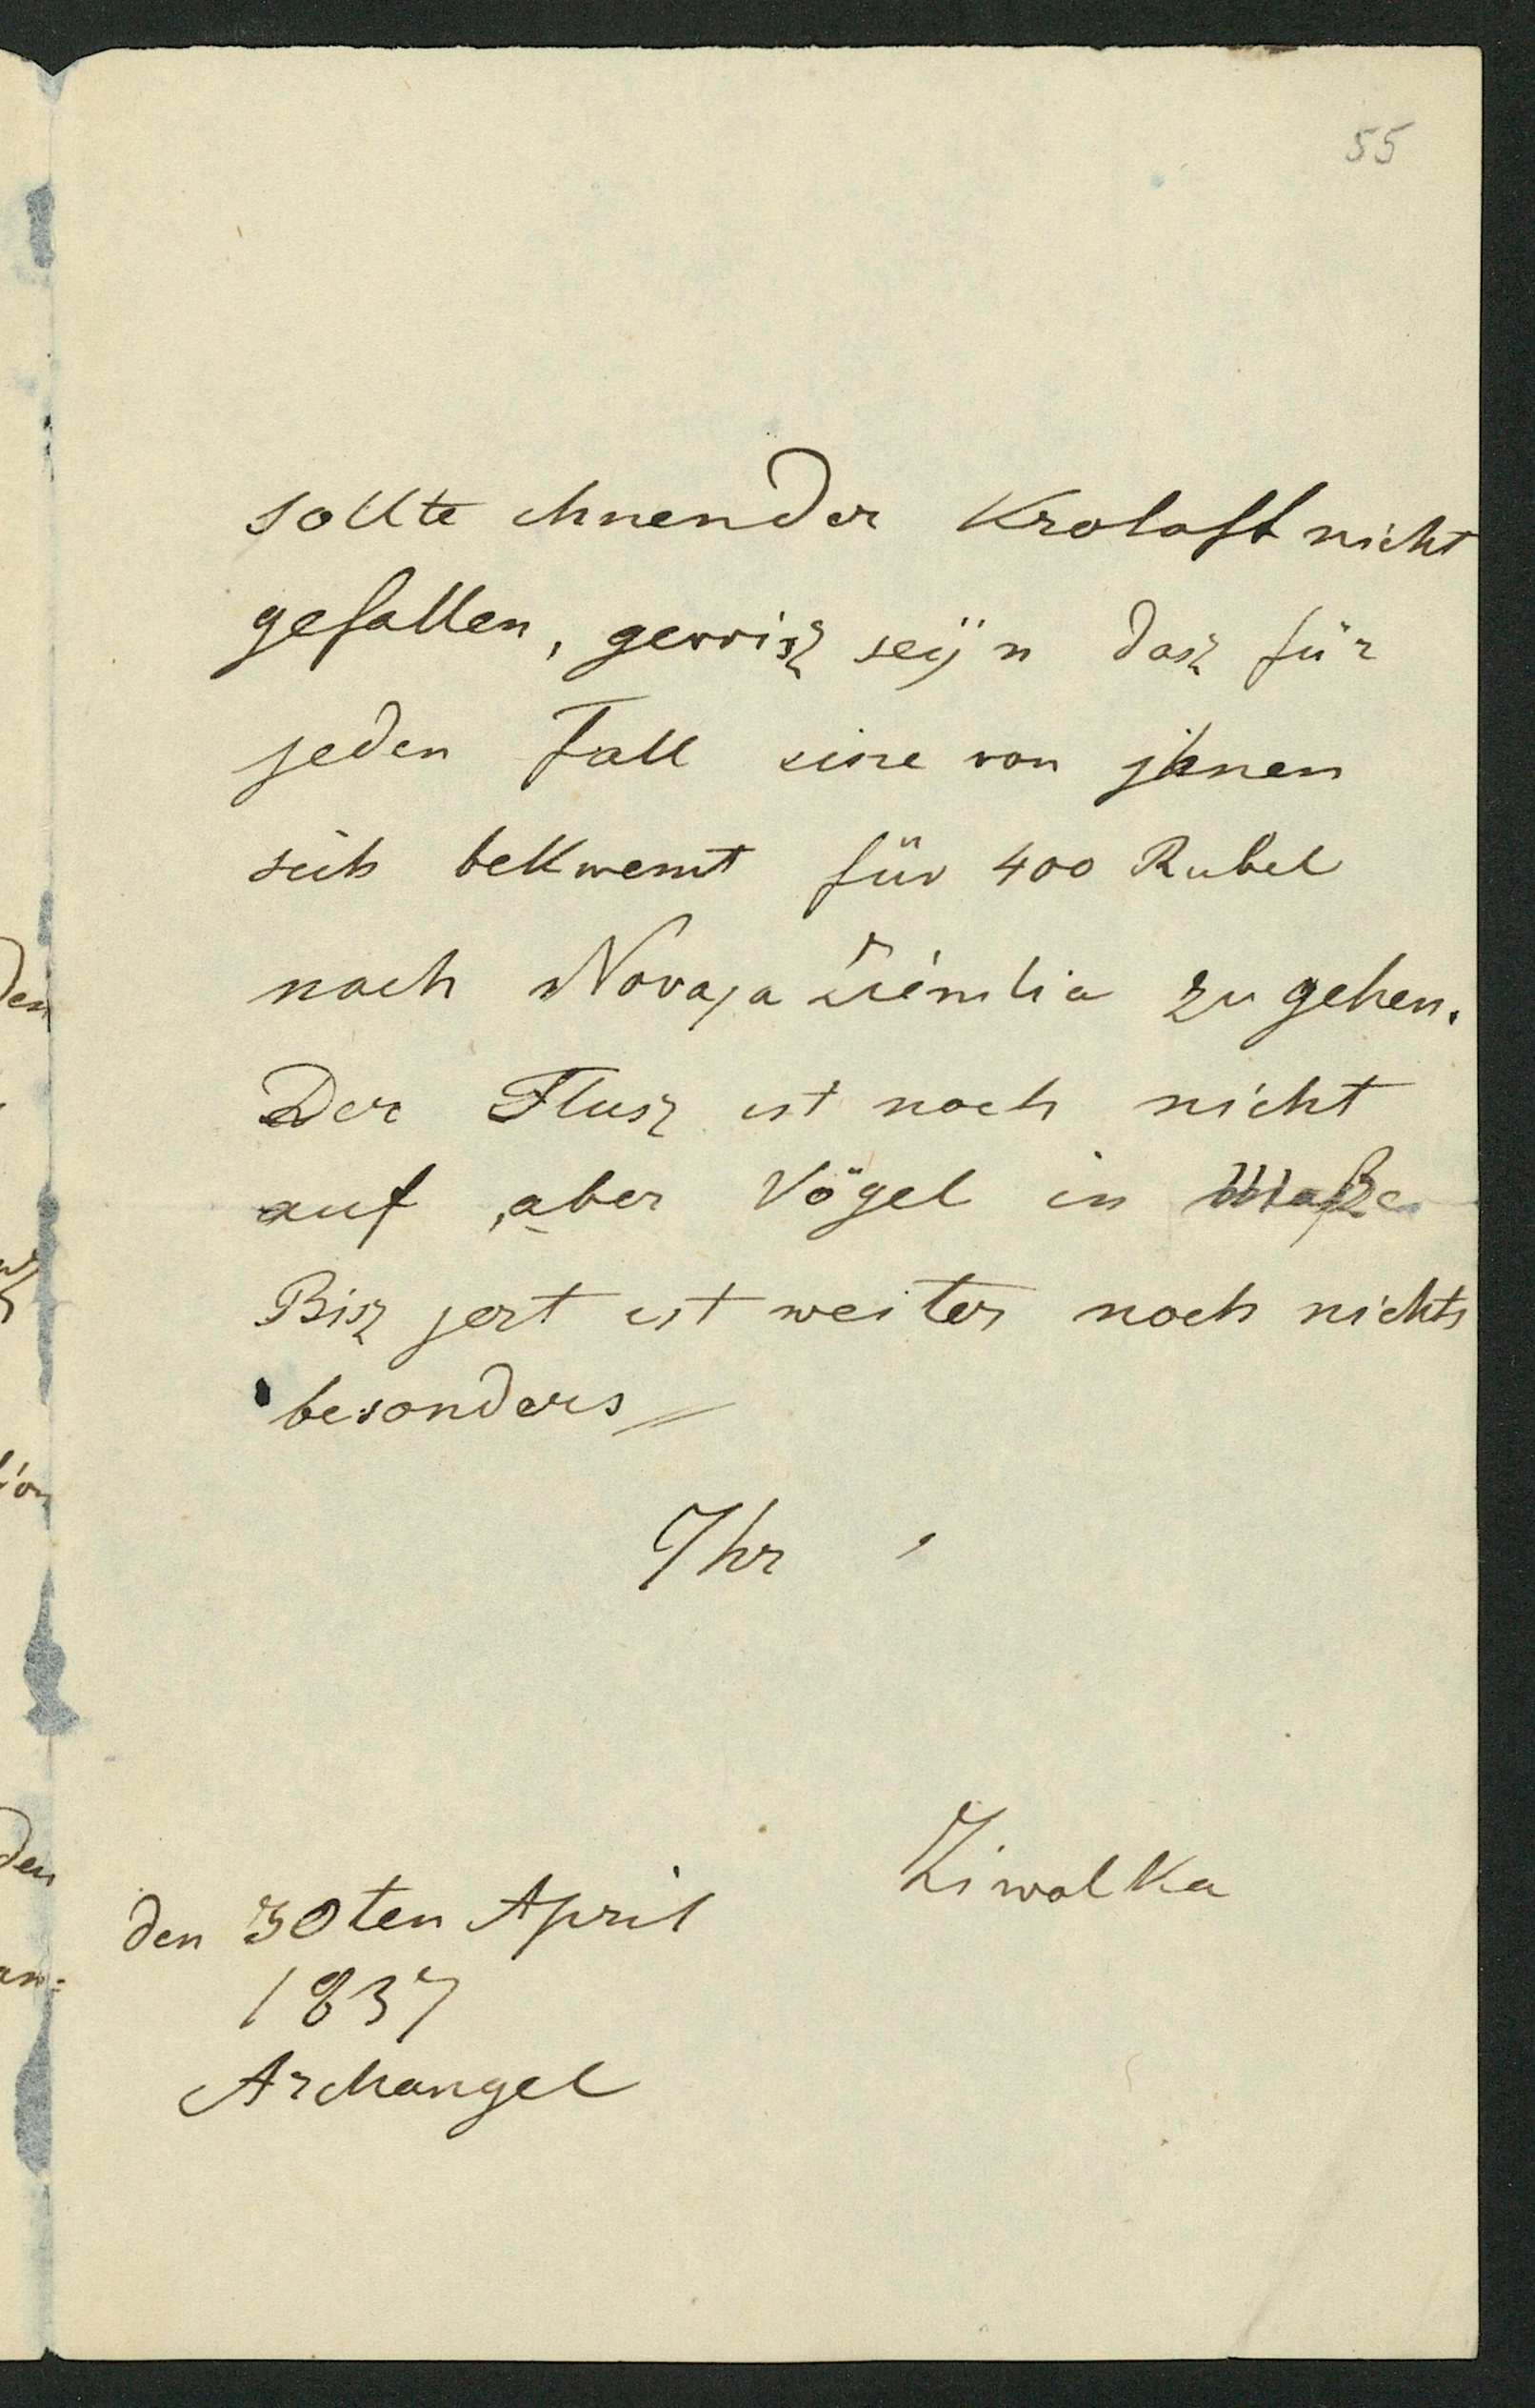 55
sollte ihnen der Krolast nicht
gefallen, gewisz seÿn dasz für
jeden Fall eine von jhnen
sich bekwemt für 400 Rubel
nach Novaja Ziemlia zu gehen.
Der Flusz ist noch nicht
auf, aber Vögel in Maße
Bisz jezt ist weiter noch nichts
besonders
Ihr
Ziwolka
den 30ten April
1837
Archangel